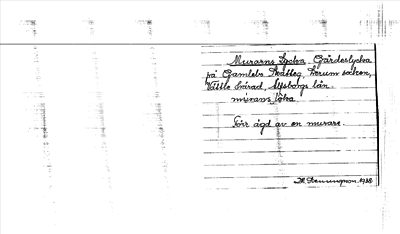 Murarns Lycka, Gärdeslycka
på Gamlebs Skatteg., Lerum socken,
Vättle härad, Älvsborgs län
mūrans lọka.
Förr ägd av en murare.
1928